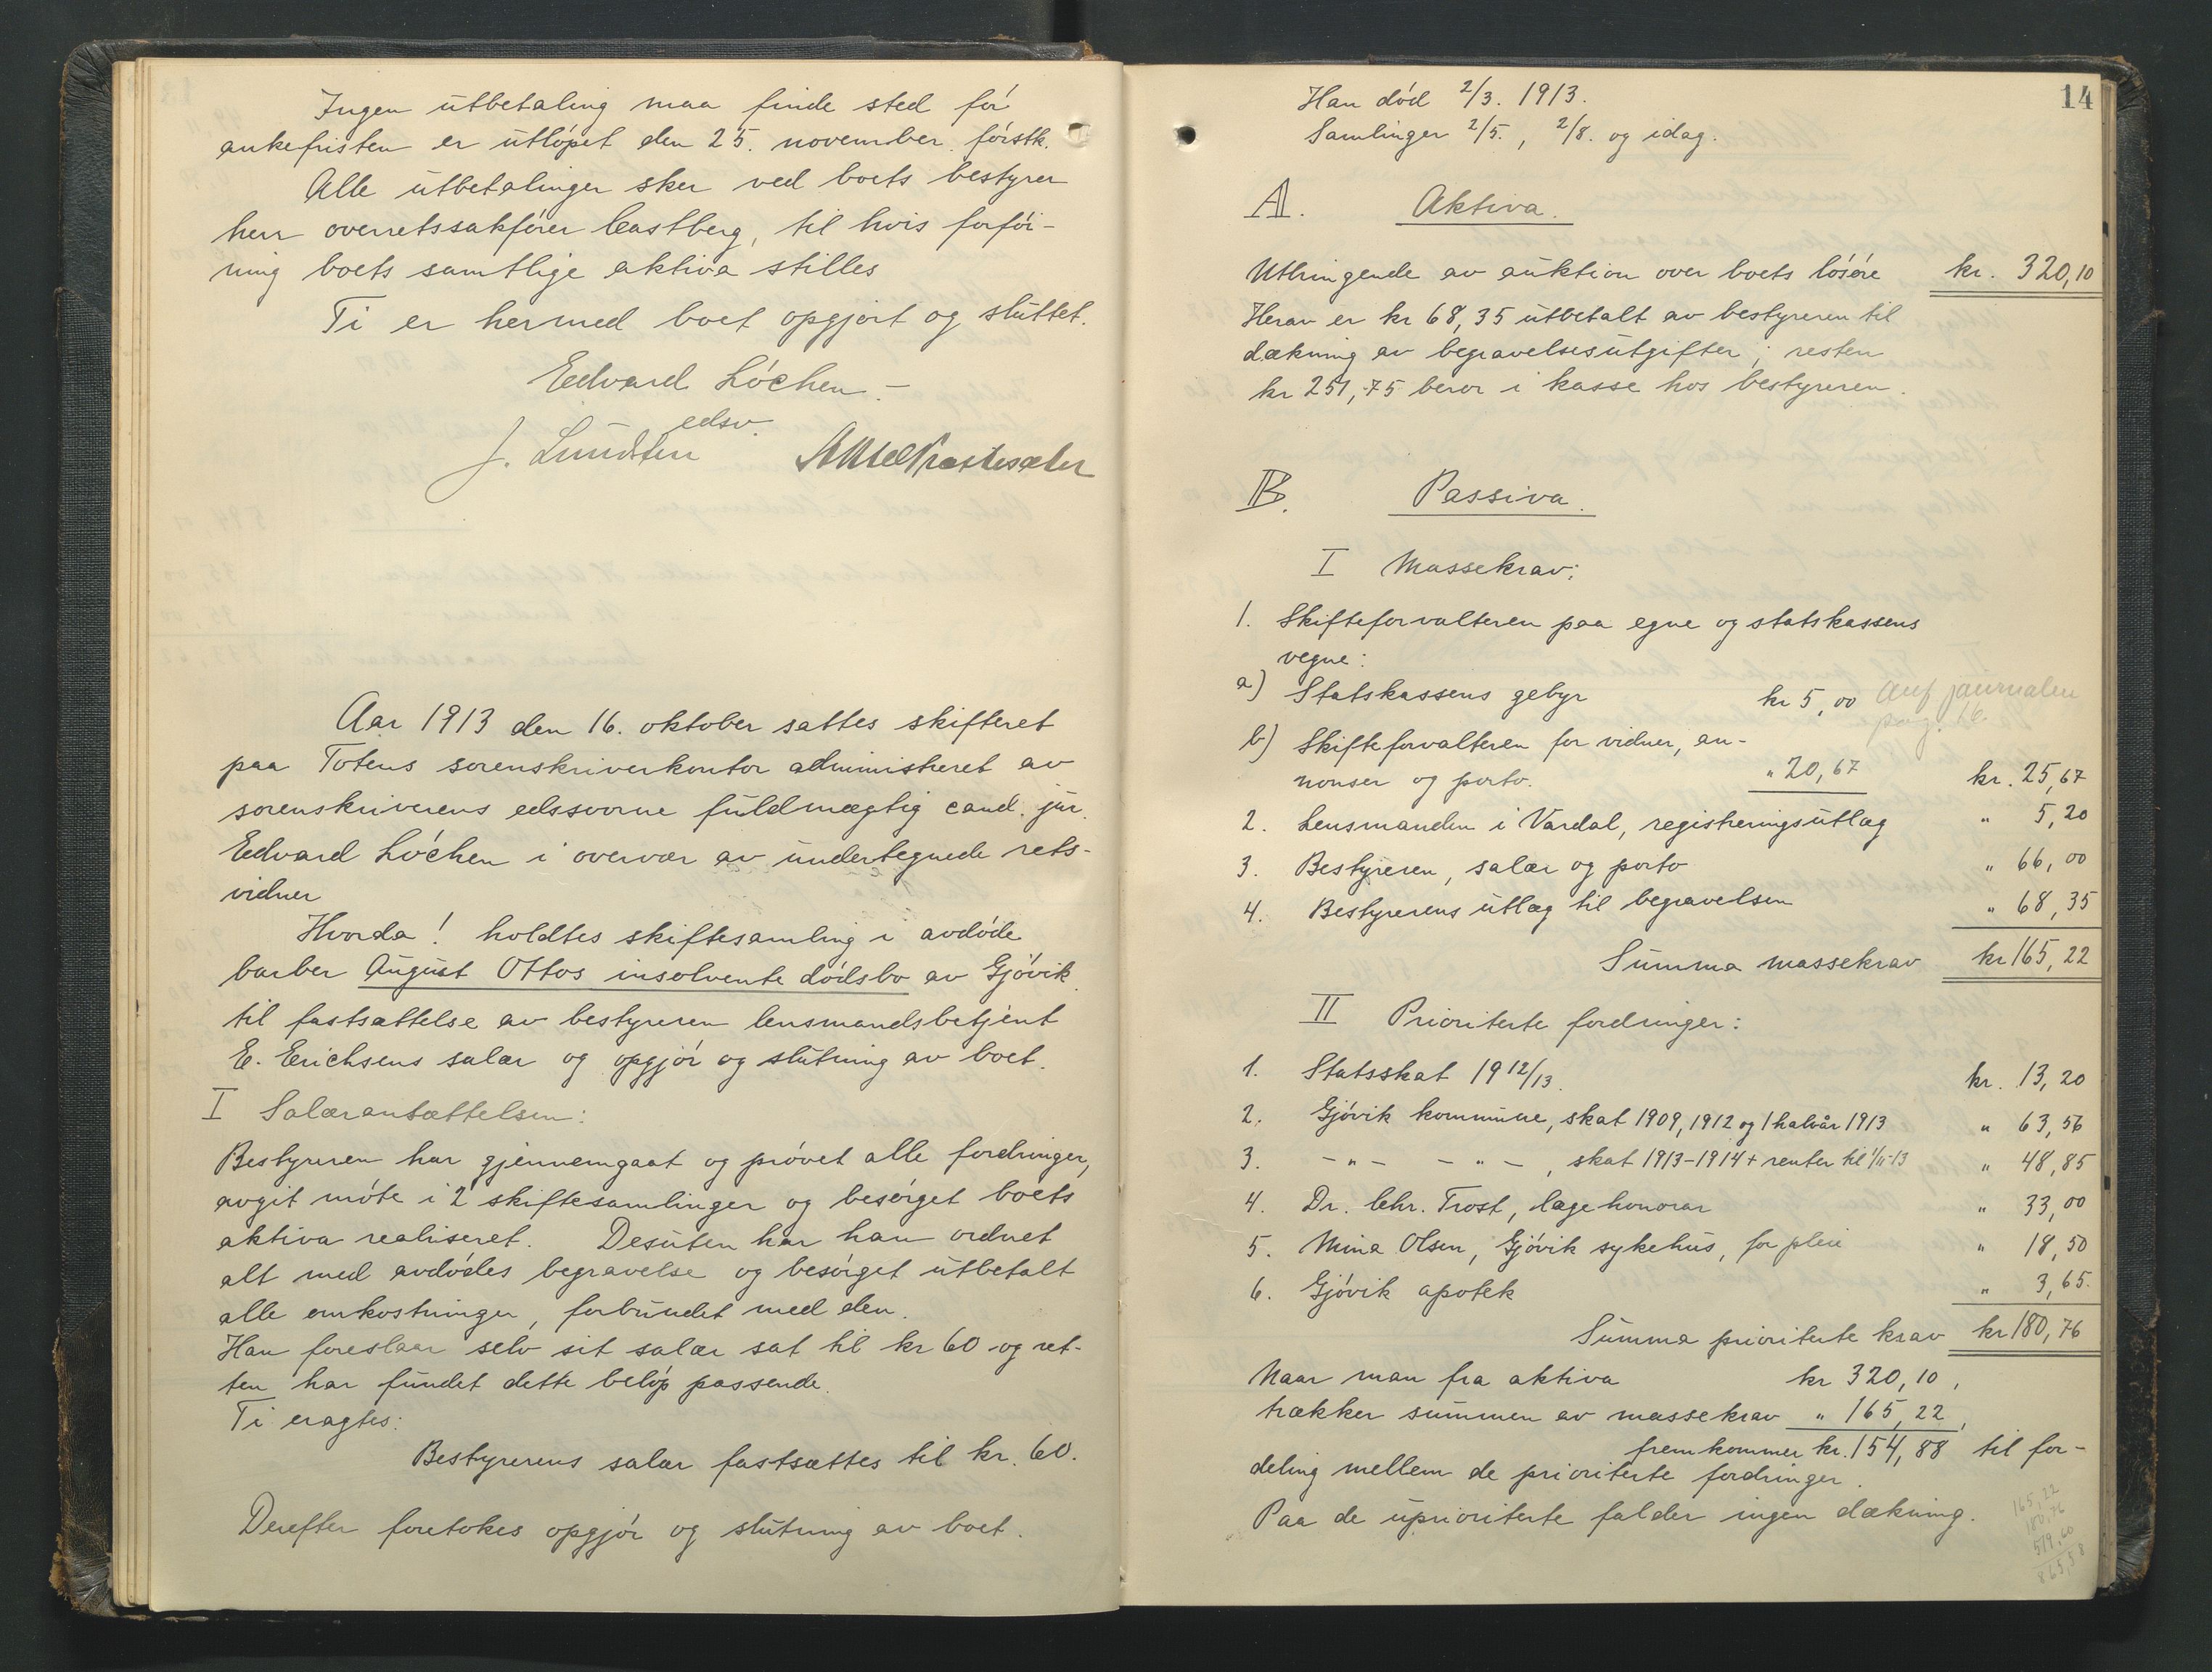 Ingen utbetaling maa finde sted før
ankefristen er utløpet den 25. november førstk.
Alle utbetalinger sker ved boets bestyrer
herr overretssakfører Castberg, til hvis forføi-
ning boets samtlige aktiva stilles
Ti er hermed boet opgjort og sluttet.
Edvard Løchen
edsv.
J. Lundsten
Aar 1913 den 16. oktober sattes skifteret
paa Totens sorenskriverkontor administreret av
sorenskriverens edssvorne fuldmægtig cand. jur.
Edvard Løchen i overvær av undertegnede rets-
vidner
Hvorda! holdtes skiftesamling i avdøde
barber August Ottos insolvente dødsbo av Gjøvik
til fastsættelse av bestyreren lensmandsbetjent
E. Erichsens salær og opgjør og slutning av boet.
I Salæransættelsen:
Bestyreren har gjennemgaat og prøvet alle fordringer,
avgit møte i 2 skiftesamlinger og besørget boets
aktiva realiseret. Desuten har han ordnet
alt med avdødes begravelse og besørget utbetalt
alle omkostninger, forbundet med den.
Han foreslaar selv sit salær sat til kr 60 og ret-
ten har fundet dette beløp passende.
Ti eragtes:
Bestyrerens salær fastsættes til kr. 60.
Derefter foretokes opgjør og slutning av boet.
14
Han død 2/3. 1913.
Samlinger 2/5., 2/8. og idag.
A. Aktiva.
Utbringende av auktion over boets løsøre kr. 320,10
Herav er kr 68,35 utbetalt av bestyreren til
dækning av begravelsesutgifter; resten
kr 251,75 beror i kasse hos bestyreren.
B. Passiva.
I Massekrav:
1. Skifteforvalteren paa egne og statskassens
vegne:
a) Statskassens gebyr kr 5,00 Anf journalen
pag. 16.
b) Skifteforvalteren for vidner, an-
nonser og porto. " 20,67 kr. 25,67
2. Lensmanden i Vardal, registreringsutlæg " 5,20
3. Bestyreren, salær og porto " 66,00
4. Bestyrerens utlæg til begravelsen " 68,35
Summa massekrav kr 165,22
II Prioriterte fordringer:
1. Statsskat 1912/13. kr. 13,20
2. Gjøvik kommune, skat 1909, 1912 og 1 halvår 1913 " 63,56
3. - " - - " -, skat 1913-1914 + renter til 1/11-13 " 48,85
4. Dr. Chr. Trost, lægehonorar " 33,00
5. Mina Olsen, Gjøvik sykehus, for pleie " 18,50
6. Gjøvik apotek " 3,65.
Summa prioriterte krav kr 180,76
Naar man fra aktiva kr 320,10,
trækker summen av massekrav " 165,22,
fremkommer kr. 154,88 til for-
deling mellem de prioriterte fordringer.
Paa de uprioriterte falder ingen dækning.
165,22
180,76
519,60
865,58